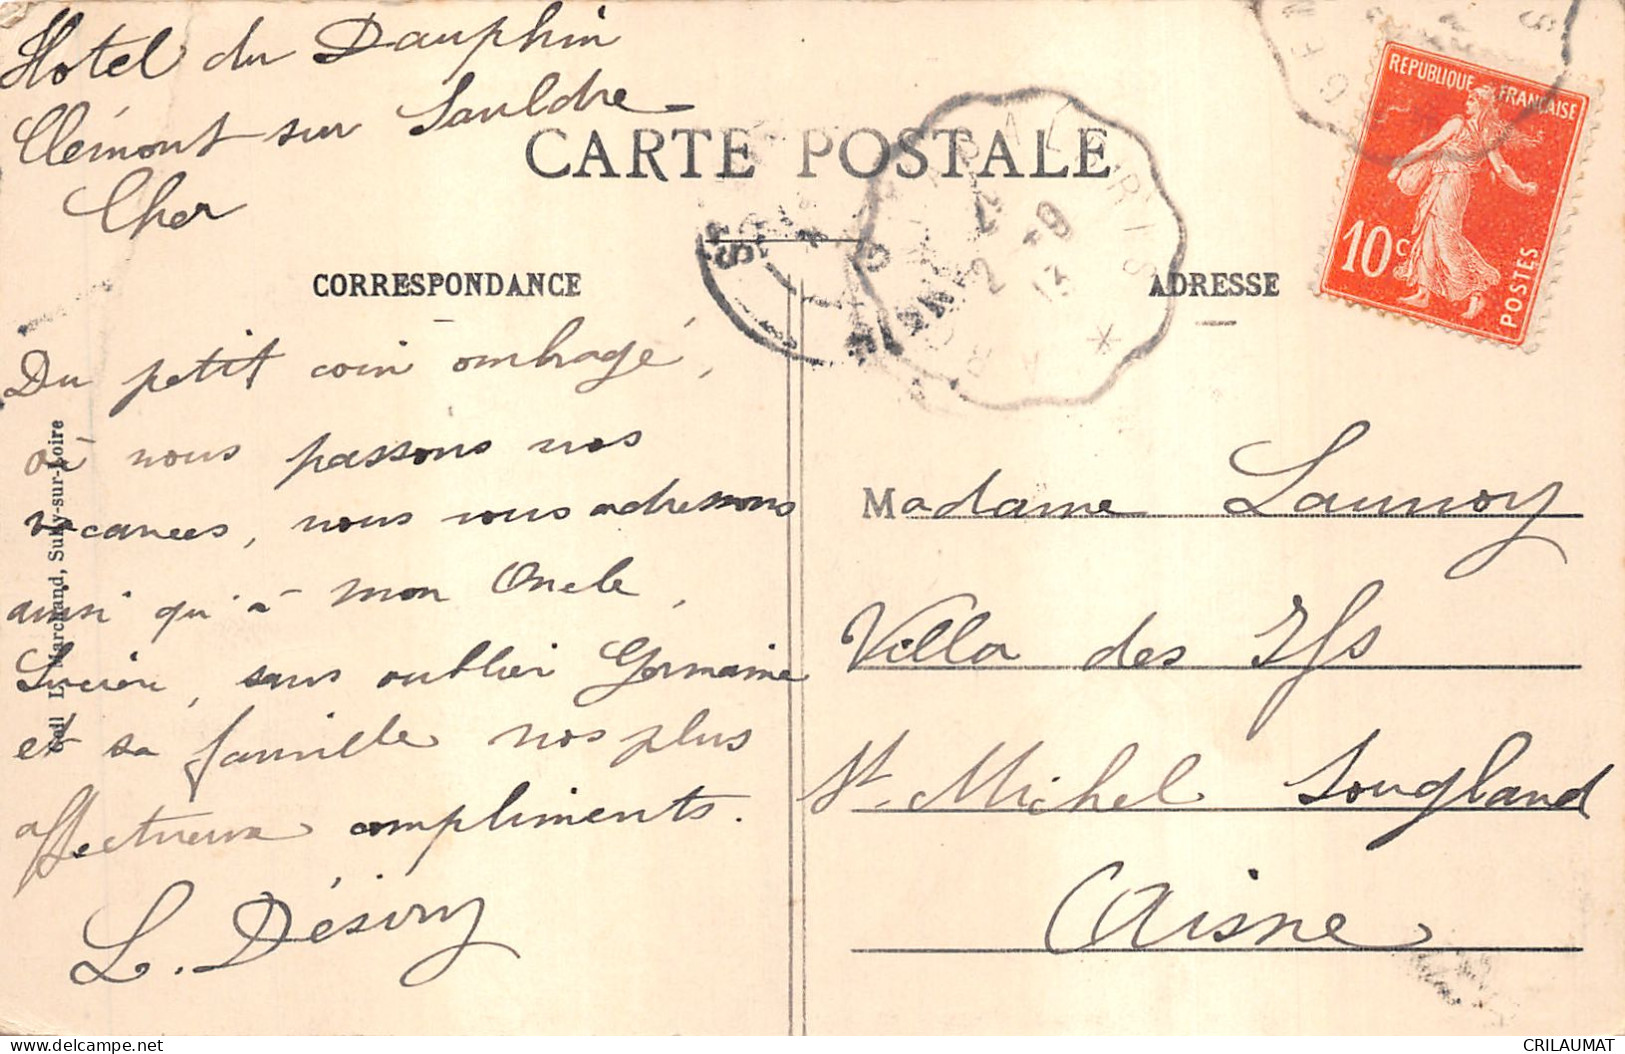 Hotel du Dauphin
Clémont sur Sauldre
Cher
CARTE POSTALE
CORRESPONDANCE
ADRESSE
REPUBLIQUE FRANÇAISE
10c
POSTES
2 -9
13
Du petit coin ombragé,
où nous passons nos
vacances, nous vous adressons
ainsi qu'à mon Oncle,
sans oublier Germaine
et sa famille nos plus
affectueux compliments.
L. Désiry
Coll L. Marchand, Sully-sur-Loire
Madame Launoy
Villa des Ifs
St. Michel Sougland
Aisne
CRILAUMAT